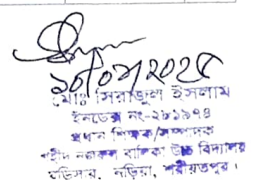 ১০/০৭/২০২৫
মোঃ সিরাজুল ইসলাম
ইনডেক্স নং-২৮১৯৭৪
প্রধান শিক্ষক/সম্পাদক
শহীদ বালিকা উচ্চ বিদ্যালয়
নড়িয়া, শরীয়তপুর।